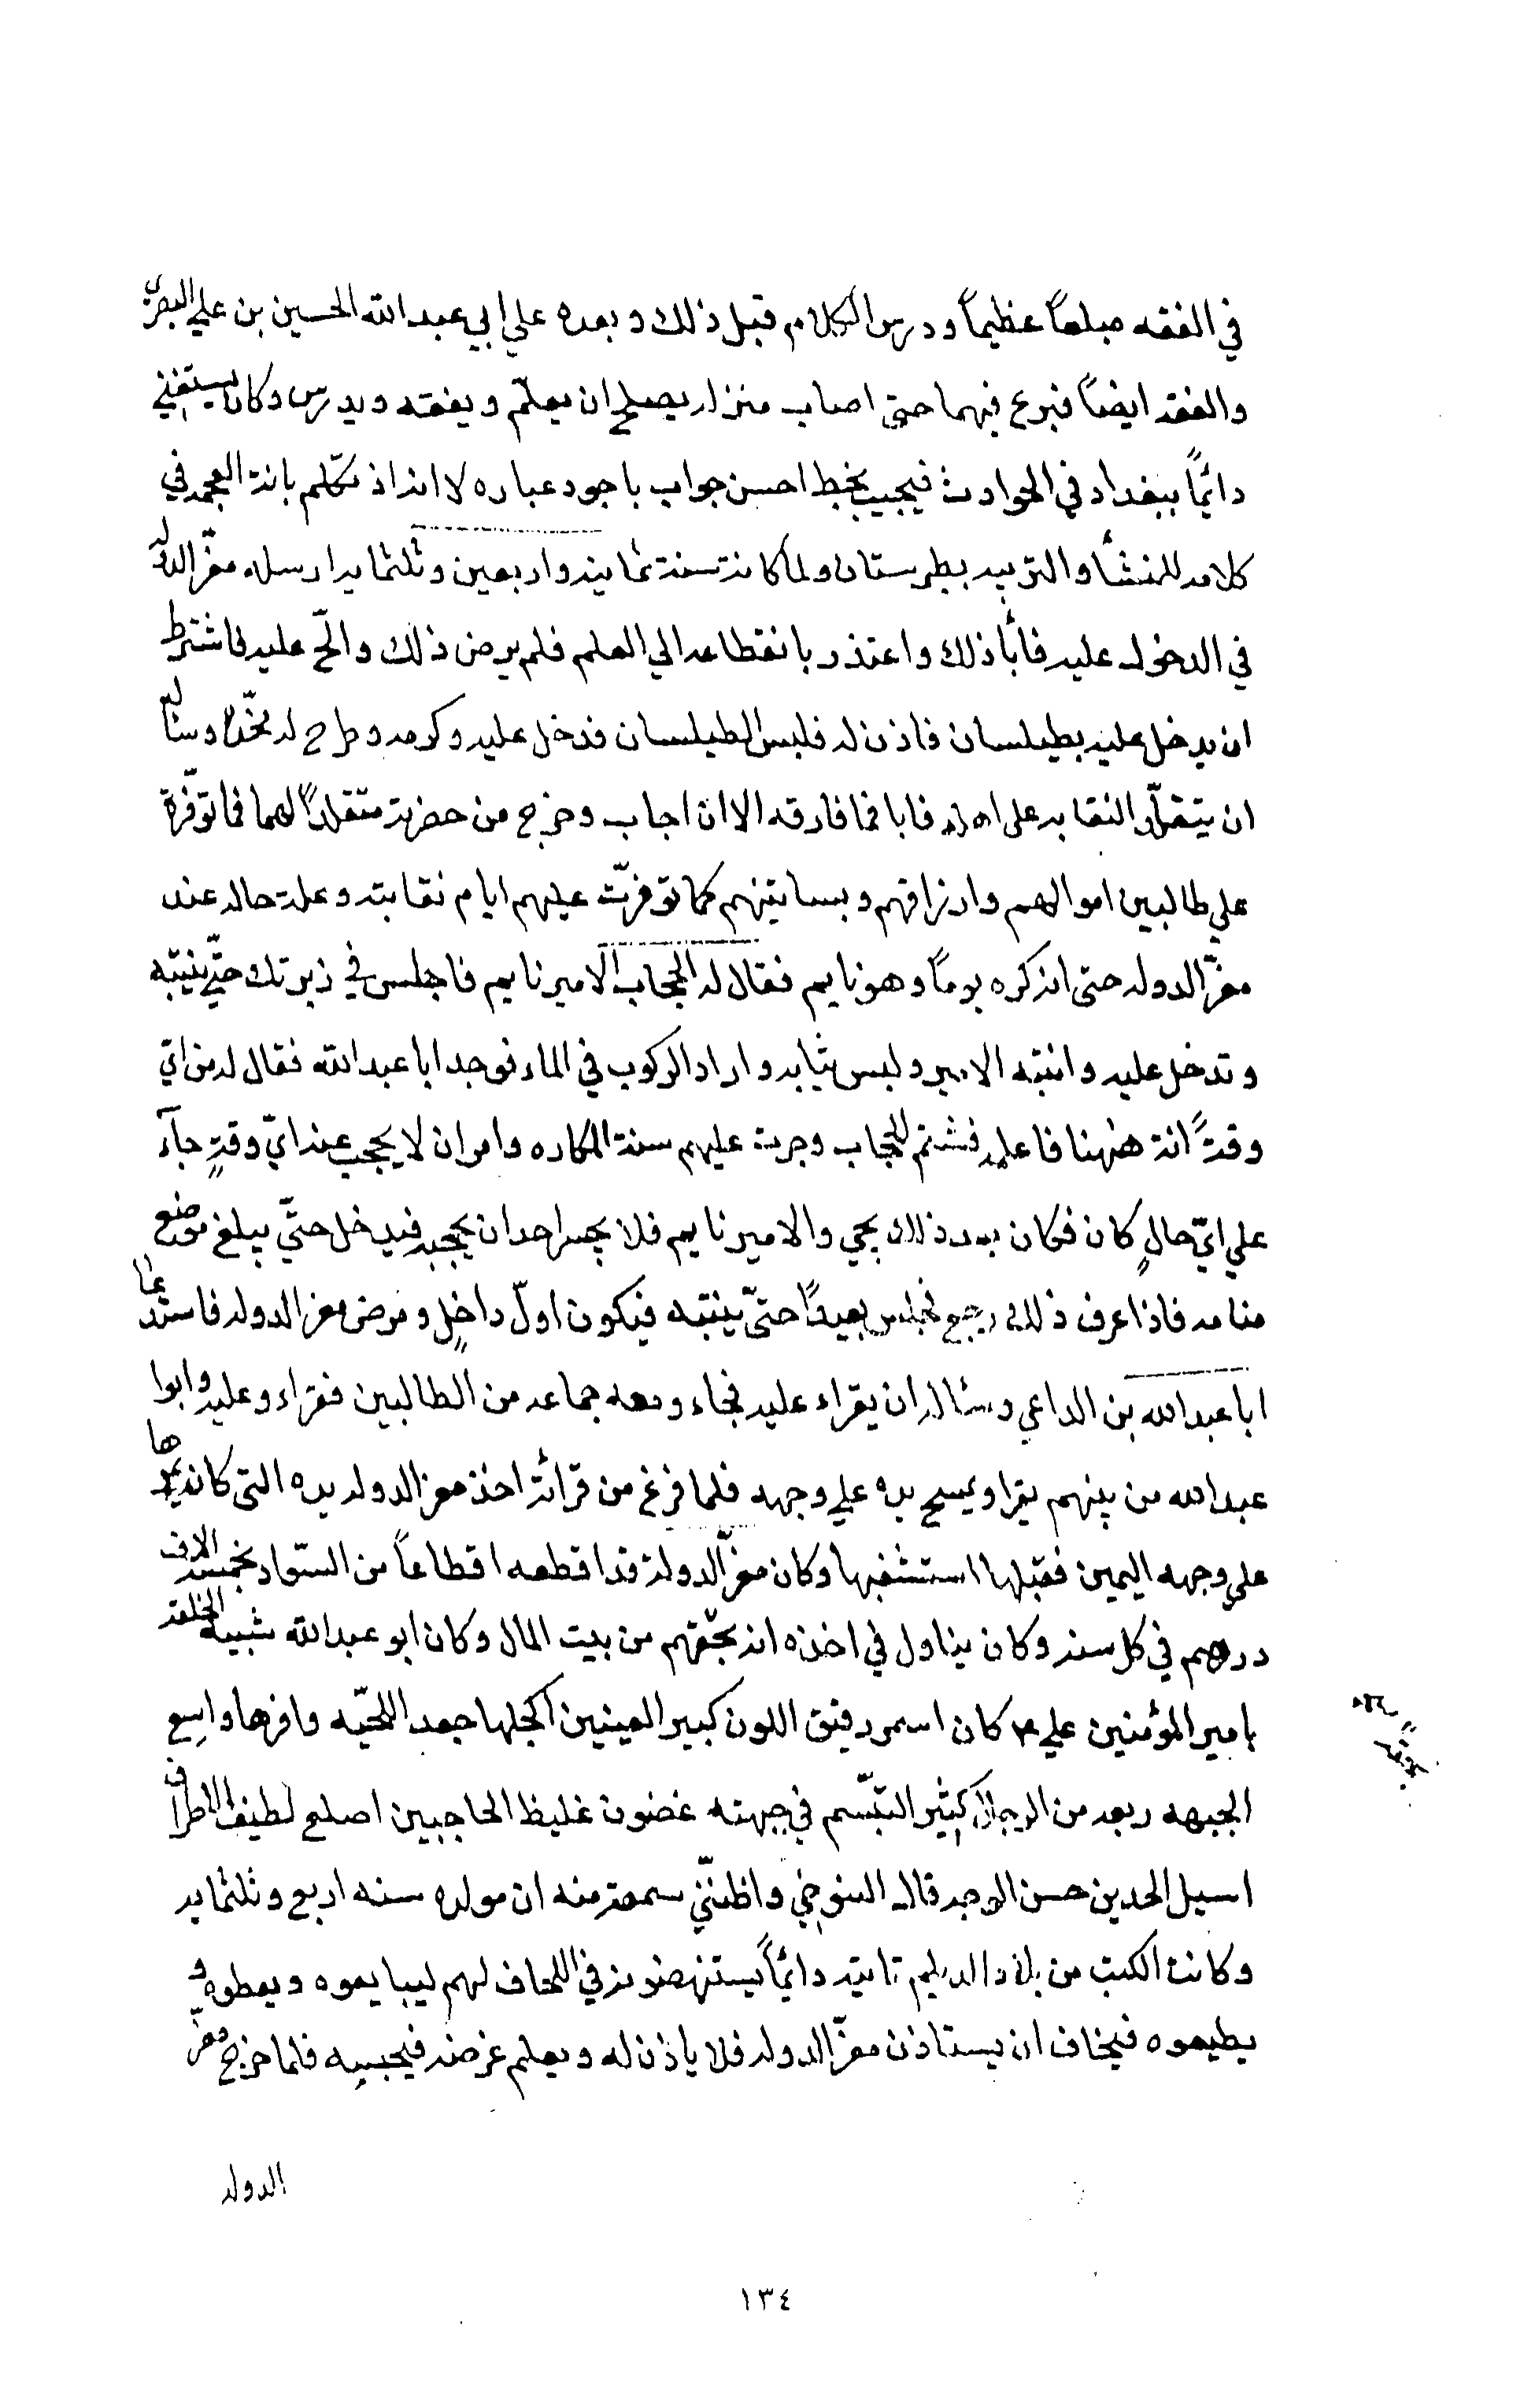 في الفقه مبلغاً عظيماً ودرس الكلام قبل ذلك وبعده علي ابي عبدالله الحسين بن علي البصري
والفقه ايضاً فبرع فيهما حتي اصاب منزله يصلح ان يعلّم ويفقه ويدرس وكان يستفتي
دائماً ببغداد في الحوادث فيجيب بخط احسن جواب باجود عباره لا انه اذ تكلّم بانت العجمه في
كلامه للمنشأ والتربيه بطبرستان ولما كانت سنة ثمانيه واربعين وثلثمايه ارسله معزّ الدوله
في الدخول عليه فابأ ذلك واعتذر بانقطاعه الي العلم فلم يرض ذلك والحّ عليه فاشترط
ان يدخل عليه بطيلسان فاذن له فلبس الطيلسان فدخل عليه وكرمه وطرح له مخّدة وساله
ان يتقلّد النقابه على اهله فابا فما فارقه الا ان اجاب وخرج من حضرته متقلداً لهما فما توّفرة
علي طالبين اموالهم وارزاقهم وبساتينهم كما توفرّت عليهم ايام نقابته وعلت حاله عند
معزّ الدوله حتى انه ذكره يوماً وهو نايم فقال له الحجاب الامير نايم فاجلس في زبرتك حتّي ينتبه
وتدخل عليه وانتبه الامير ولبس ثيابه واراد الركوب في الماء فوجد ابا عبدالله فقال له من ايّ
وقتً انت هٰهنا فاعلمه فشتم الحجاب وجرت عليهم سنة المكاره وامر ان لا يحجب عنه ايّ وقتٍ جآء
علي ايّ حالٍ كان فكان بعد ذلك يجي والامير نايم فلا يجسر احد ان يحجبه فيدخل حتّي يبلغ موضع
منامه فاذا عرف ذلك رجع فجلس بعيداً حتّى ينتبه فيكون اوّل داخلٍ ومرض معز الدوله فاستدعا
ابا عبدالله بن الداعي وسئاله ان يقراء عليه فجاء ومعه جماعه من الطالبين فقراء وعليه وابوا
عبدالله من بينهم يقرا ويمسح يده علي وجهه فلما فرغ من قرائة اخذ معز الدوله يده التي كان يمرها
علي وجهه اليمين فقبلها استشفيها وكان معزّ الدولة قد اقطعه اقطاعاً من السّواد بخمسه الاف
درهم في كل سنه وكان يتاول في اخذه انه بحّقهم من بيت المال وكان ابو عبدالله شبيه الخلقه
بامير المؤمنين علي ع كان اسمر رقيق اللون كبير العينين اكحلها جعد اللحيّه وافرها واسِع
الجبهه ربعه من الرجال كثير التبّسم في جبهته غضون غليظ الحاجبين اصلع لطيف الاطراف
اسيل الخدين حسن الوجه قال التنوخي واظنّني سمعته منه ان مولده سنه اربع وثلثمايه
وكانت الكتب من بلاد الديلم تاتيه دائماً يستنهضونه في اللحاف لهم ليبايعوه ويعطوه و
يطيعوه فيخاف ان يستاذن معزّ الدوله فلا ياذن له ويعلم غرضه فيحبسه فلما خرج معزّ
الدوله
١٣٤